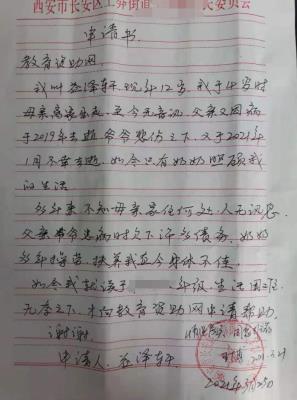 西安市长安区工 街道 民委员会
申请书
教育资助网:
我叫 泽轩,现年12岁,我于4岁时
母亲离家出走,至今无音讯,父亲又因病
于2019年去逝,爷爷悲伤之下,又于2021年
1月不幸去逝,如今只有奶奶照顾我
的生活
多年来不知母亲家住何处,人无讯息
父亲爷爷患病时欠下许多债务,奶奶
多年操劳,扶养我至今身体不佳
如今我就读于 年级,生活困难
无奈之下,才向教育资助网申请帮助.
谢谢
情况属实
申请人: 泽轩
2021.3.29
2021年3月29日